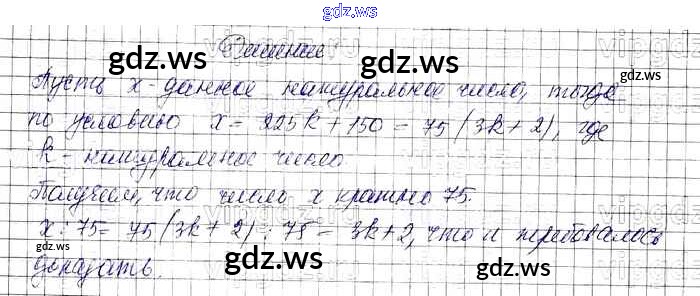 gdz.ws
Решение
Пусть x - данное натуральное число, тогда
по условию x = 225k + 150 = 75 (3k + 2), где
k - натуральное число
Получаем, что число x кратно 75.
x : 75 = 75 (3k + 2) : 75 = 3k + 2, что и требовалось
доказать.
gdz.ws gdz.ws
gdz.ws gdz.ws
gdz.ws gdz.ws
gdz.ws